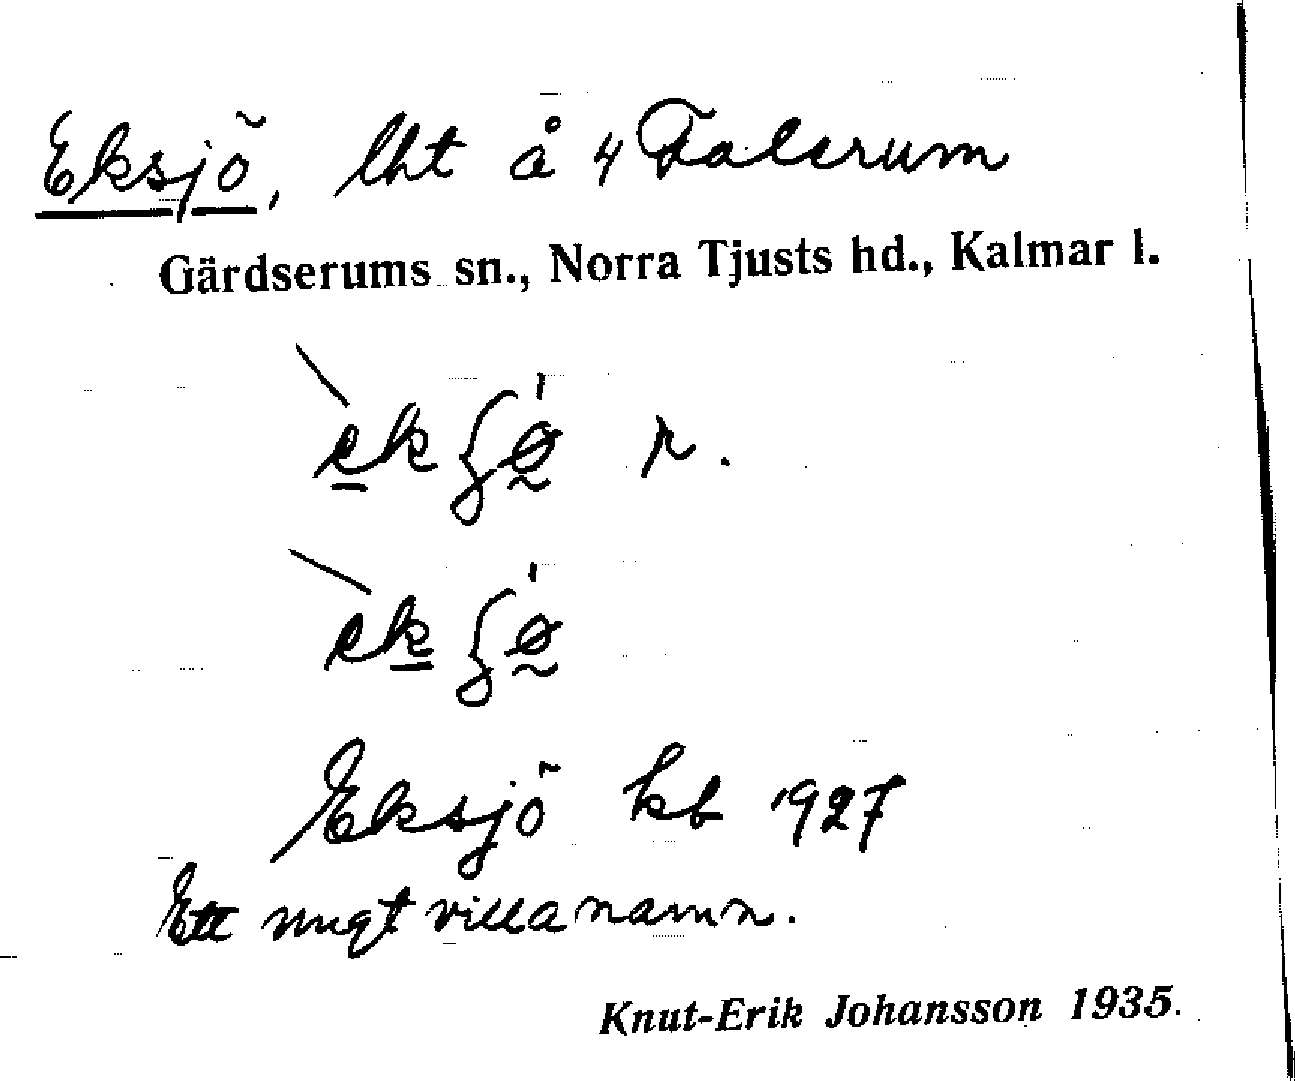 Eksjö, lht å 4 Falerum
Gärdserums sn., Norra Tjusts hd., Kalmar l.
r.
Eksjö kb 1927
Ett ungt villanamn.
Knut-Erik Johansson 1935.